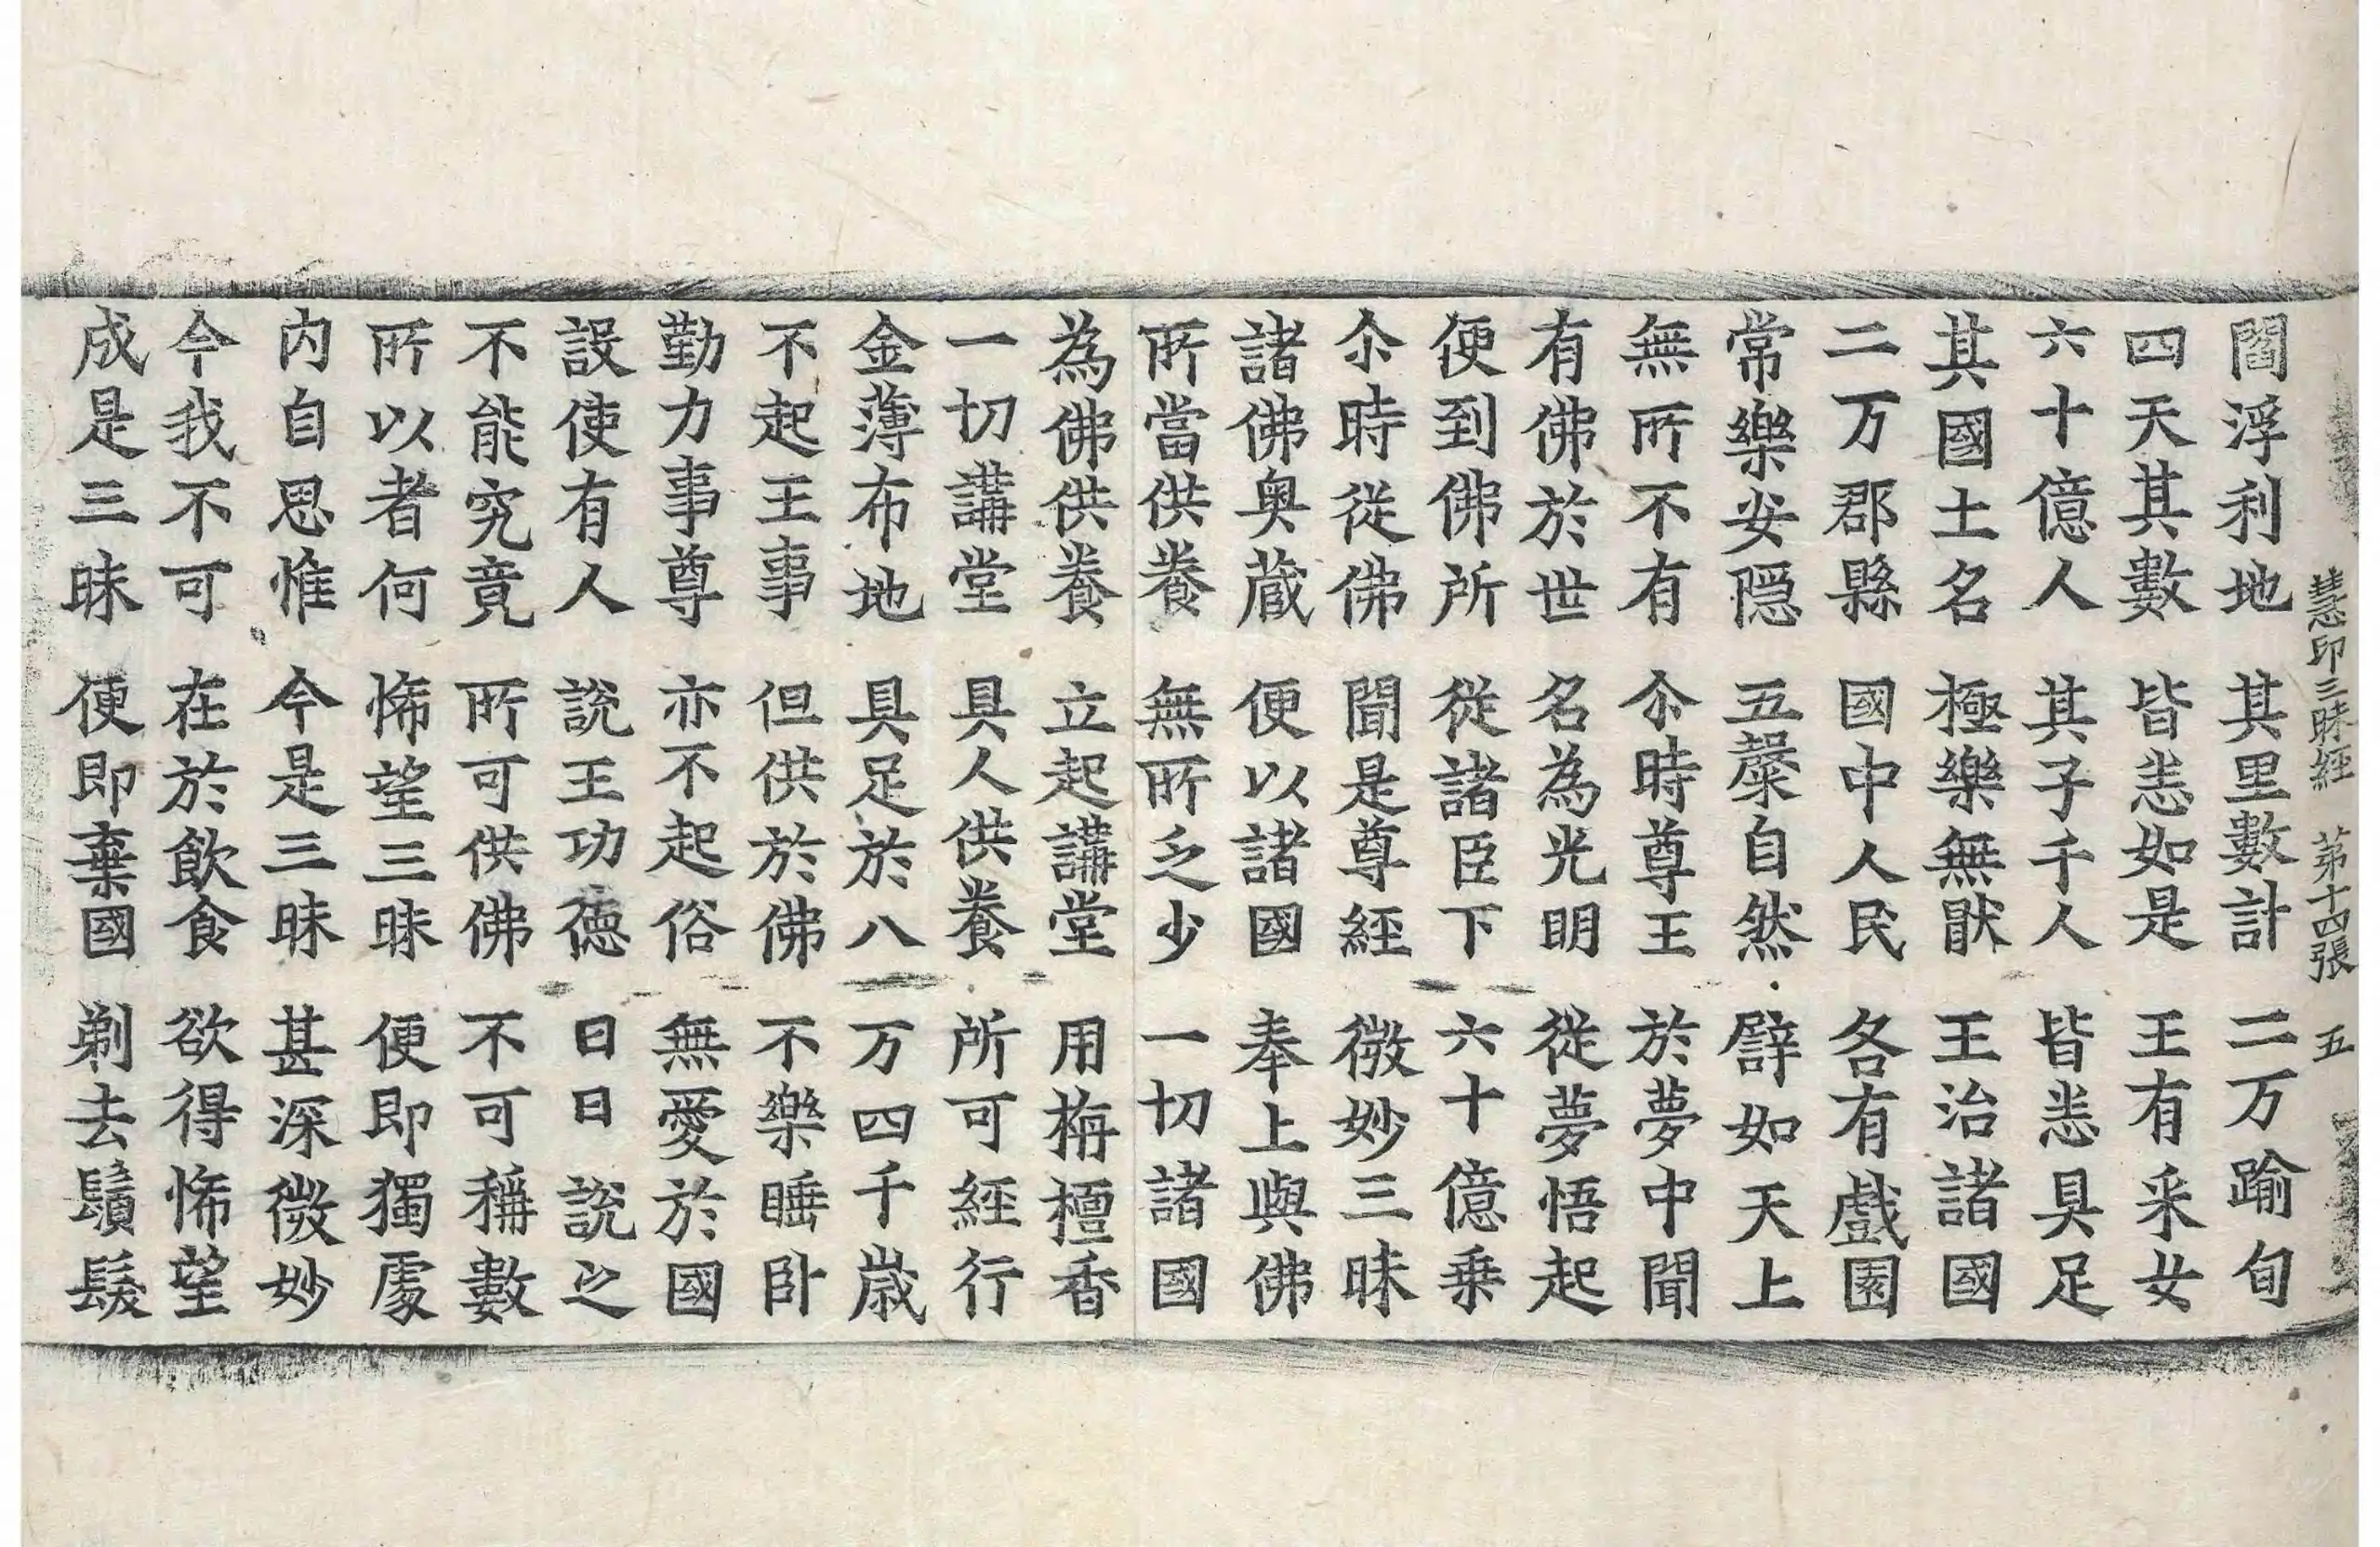 慧印三昧經 第十四張 五
閻浮利地 其里數計 二万踰旬
四天其數 皆悉如是 王有采女
六十億人 其子千人 皆悉具足
其國土名 極樂無猒 王治諸國
二万郡縣 國中人民 各有戲園
常樂安隱 五穀自然 譬如天上
無所不有 尒時尊王 於夢中聞
有佛於世 名為光明 從夢悟起
便到佛所 從諸臣下 六十億乗
尒時從佛 聞是尊經 微妙三昧
諸佛奥藏 便以諸國 奉上與佛
所當供養 無所乏少 一切諸國
為佛供養 立起講堂 用栴檀香
一切講堂 具人供養 所可經行
金薄布地 具足於八 万四千歲
不起王事 但供於佛 不樂睡卧
勤力事尊 亦不起俗 無愛於國
設使有人 說王功德 日日說之
不能究竟 所可供佛 不可稱數
所以者何 悕望三昧 便即獨處
内自思惟 今是三昧 甚深微妙
今我不可 在於飲食 欲得悕望
成是三昧 便即棄國 剃去鬚髮